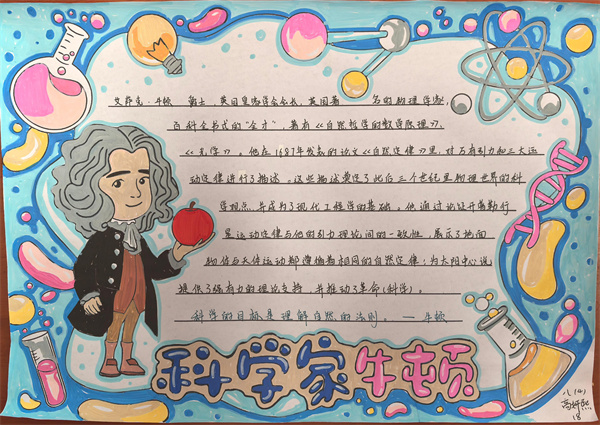 艾萨克·牛顿 爵士,英国皇家学会会长,英国著 名的物理学家,
百科全书式的“全才”,著有《自然哲学的数学原理》、
《光学》。他在1687年发表的论文《自然定律》里,对万有引力和三大运
动定律进行了描述。这些描述奠定了此后三个世纪里物理世界的科
学观点,并成为了现代工程学的基础。他通过论证开普勒行
星运动定律与他的引力理论间的一致性,展示了地面
物体与天体运动都遵循着相同的自然定律;为太阳中心说
提供了强有力的理论支持,并推动了革命(科学)。
科学的目标是理解自然的法则。—牛顿
科学家牛顿
八(4)
18